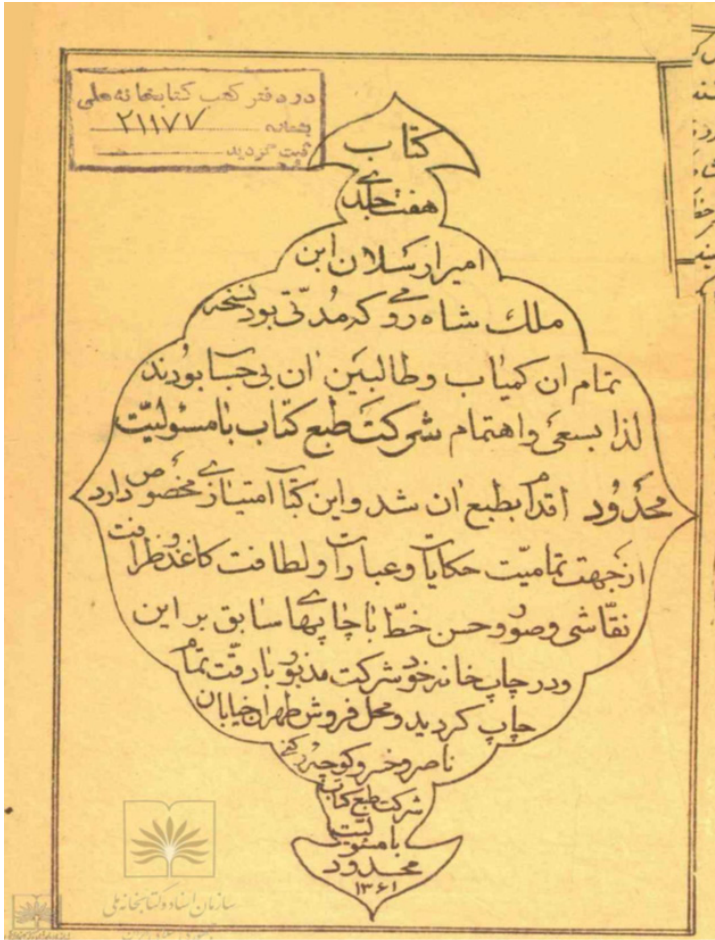 در دفتر کتب کتابخانه ملی
بشماره ۲۱۱۷۷
ثبت گردید
کتاب
هفت جلدی
امیر ارسلان ابن
ملک شاه رومی که مدتی بود نسخه
تمام ان کمیاب و طالبین ان بی حساب بودند
لذا بسعی و اهتمام شرکت طبع کتاب با مسئولیت
محدود اقدام بطبع ان شد و این کتاب امتیازی مخصوص دارد
از جهت تمامیت حکایات و عبارات و لطافت کاغذ و ظرافت
نقاشی و صور و حسن خط با چاپهای سابق بر این
و در چاپ خانه خود شرکت مذبور با دقت تمام
چاپ کردید و محل فروش طهران خیابان
ناصر و خسرو کوچه
شرکت طبع کتاب
با مسئولیت
محدود
۱۳۶۱
سازمان اسناد و کتابخانه ملی